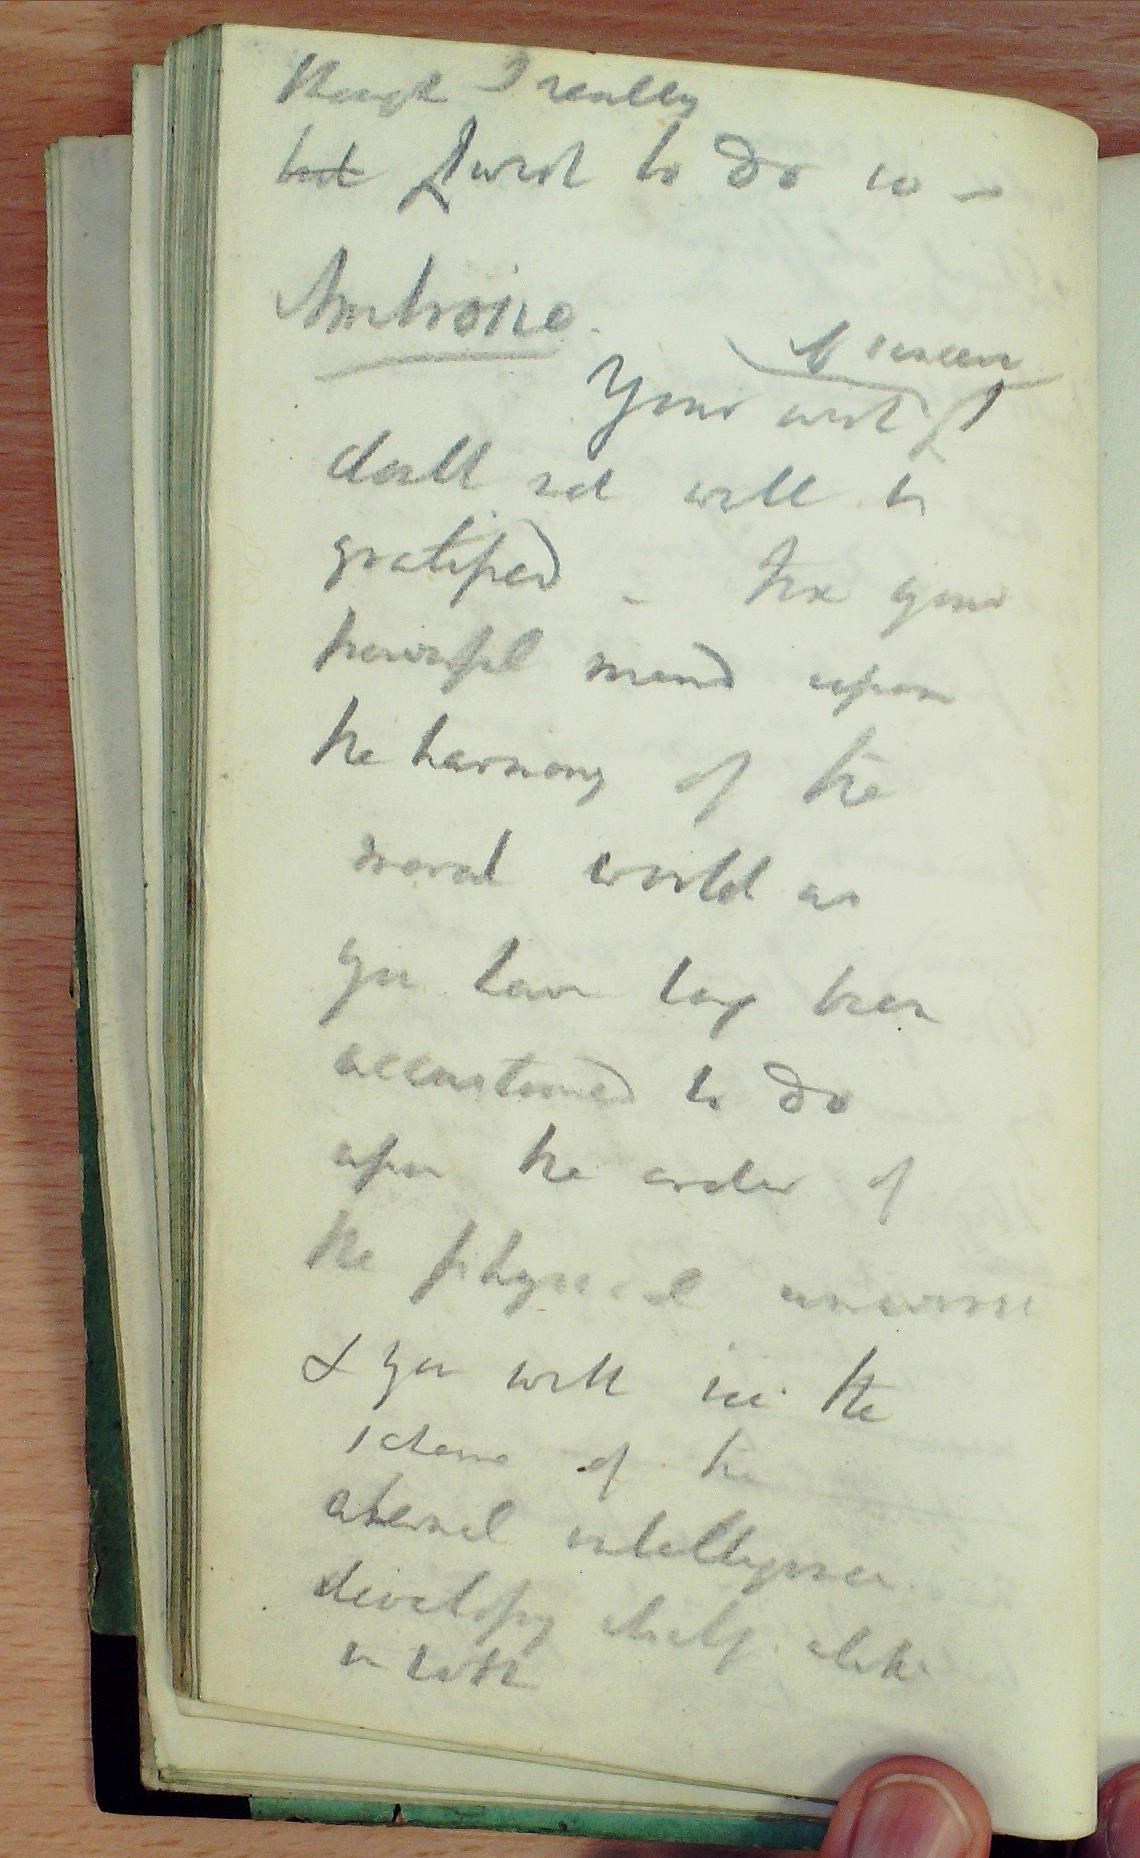 though I really
but I wish to do so –
Ambrosio.
if sincere
Your wish I
doubt not will be
gratified – Fix your
powerful mind upon
the harmony of the
moral world as
you have long been
accustomed to do
upon the order of
the physical universe
& you will see the
scheme of the
eternal intelligence
developing itself alike
in both